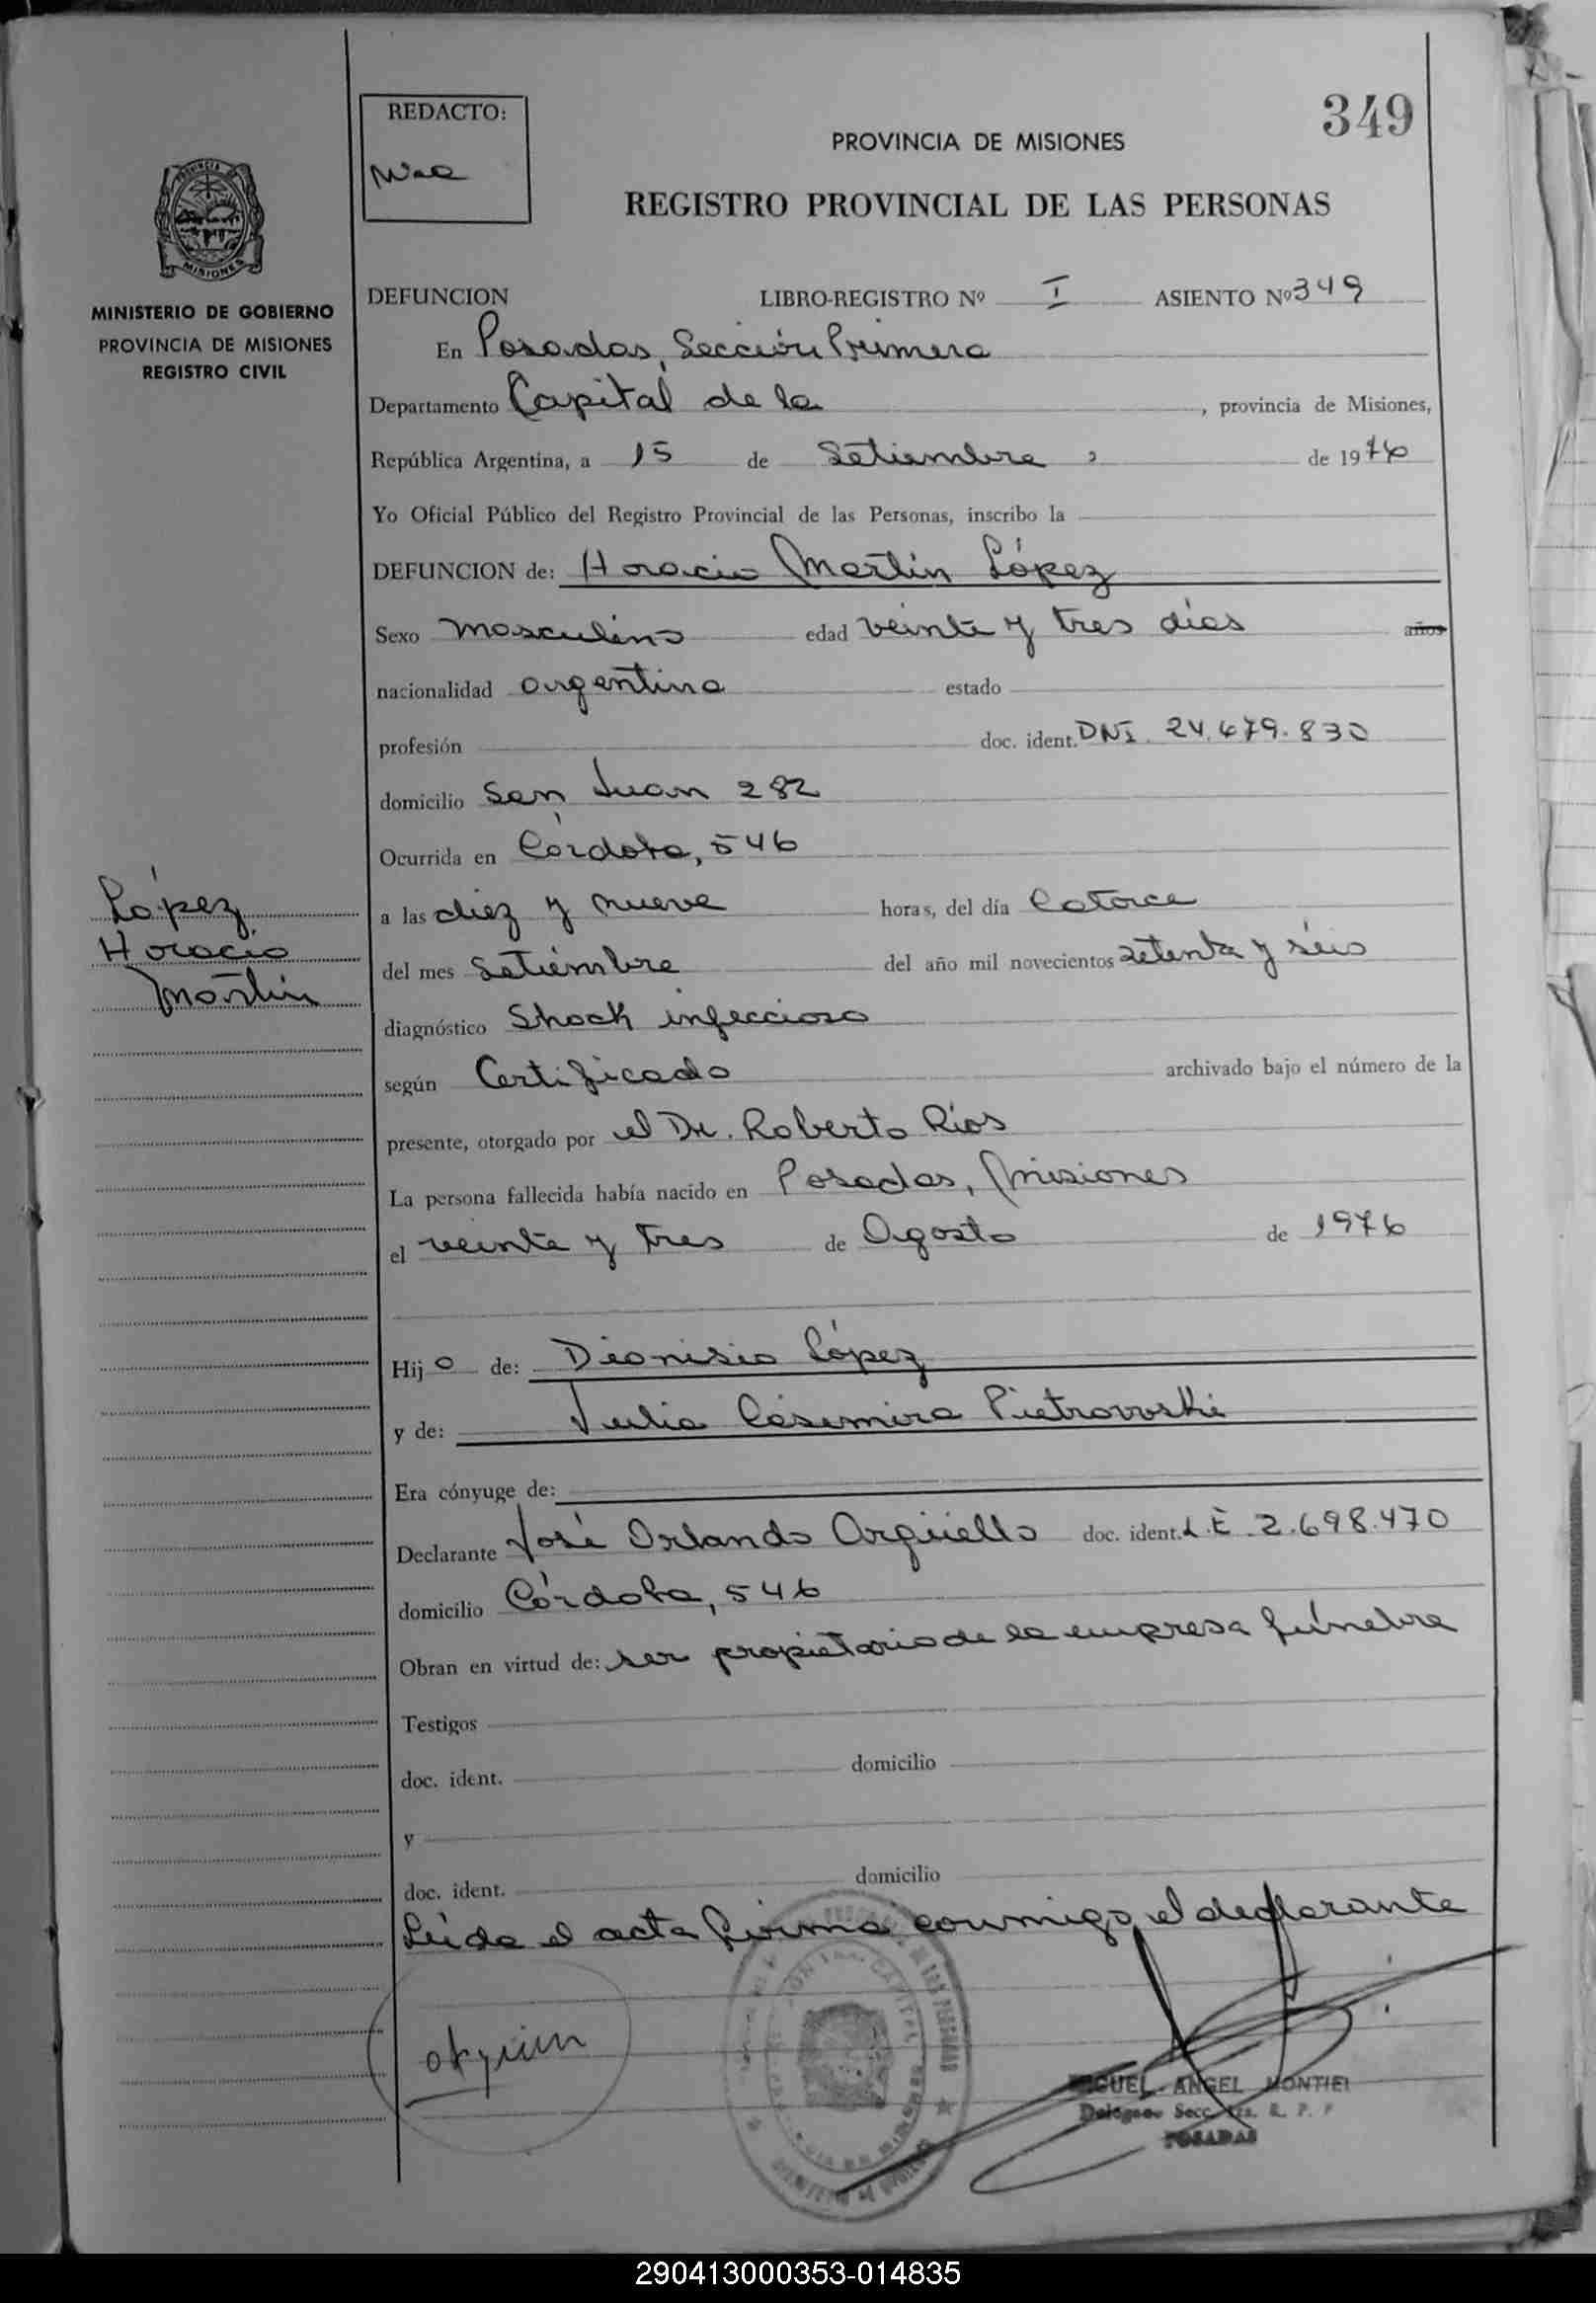 349
REDACTO:
PROVINCIA DE MISIONES
REGISTRO PROVINCIAL DE LAS PERSONAS
PROVINCIA DE
MISIONES
MINISTERIO DE GOBIERNO
PROVINCIA DE MISIONES
REGISTRO CIVIL
DEFUNCION LIBRO-REGISTRO Nº I ASIENTO Nº 349
En Posadas, Sección Primera
Departamento Capital de la , provincia de Misiones,
República Argentina, a 15 de Setiembre, de 1976
Yo Oficial Público del Registro Provincial de las Personas, inscribo la
DEFUNCION de: Horacio Martín López
Sexo masculino edad veinte y tres días años
nacionalidad argentina estado
profesión doc. ident. DNI. 24.679.830
domicilio San Juan 282
Ocurrida en Córdoba, 546
López
Horacio
Martín
a las diez y nueve horas, del día Catorce
del mes Setiembre del año mil novecientos setenta y séis
diagnóstico Shock infeccioso
según Certificado archivado bajo el número de la
presente, otorgado por el Dr. Roberto Ríos
La persona fallecida había nacido en Posadas, Misiones
el veinte y tres de Agosto de 1976
Hijo de: Dionisio López
y de: Julia Casimira Pietrovoski
Era cónyuge de:
Declarante José Orlando Argüello doc. ident. L.E. 2.698.470
domicilio Córdoba, 546
Obran en virtud de: ser propietario de la empresa fúnebre
Testigos
doc. ident. domicilio
y
doc. ident. domicilio
Leída el acta firma conmigo el declarante
MIGUEL ANGEL MONTIEL
POSADAS
290413000353-014835